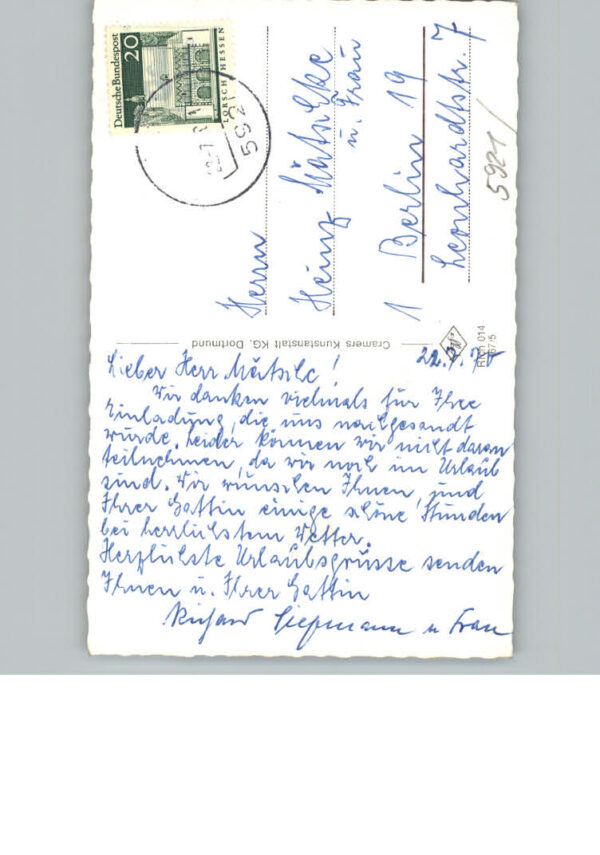 Deutsche Bundespost
20
LORSCH/HESSEN
592
Herrn
Heinz Mätschke
u. Frau
1 Berlin 19
Leonhardtstr. 7
5921/
Cramers Kunstanstalt KG, Dortmund
014
67/5
22.7.70
Lieber Herr Mätschke!
Wir danken vielmals für Ihre
Einladung, die uns nachgesandt
wurde. Leider können wir nicht daran
teilnehmen, da wir noch im Urlaub
sind. Wir wünschen Ihnen und
Ihrer Gattin einige schöne Stunden
bei herrlichstem Wetter.
Herzlichste Urlaubsgrüsse senden
Ihnen u. Ihrer Gattin
Richard Siepmann u Frau